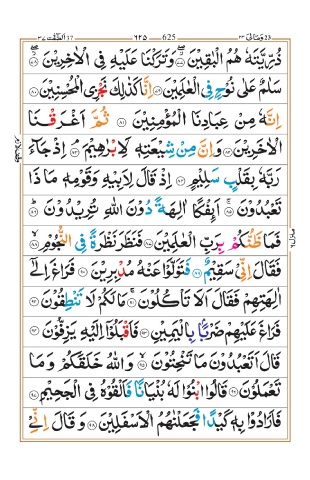 وَمَالِيَ ٢٣ ٦٢٥ 625 الصّٰٓفّٰت ٣٧
ذُرِّيَّتَهٗ هُمُ الْبٰقِيْنَ ۝٧٧ وَتَرَكْنَا عَلَيْهِ فِى الْاٰخِرِيْنَ ۝٧٨
سَلٰمٌ عَلٰى نُوْحٍ فِى الْعٰلَمِيْنَ ۝٧٩ اِنَّا كَذٰلِكَ نَجْزِى الْمُحْسِنِيْنَ ۝٨٠
اِنَّهٗ مِنْ عِبَادِنَا الْمُؤْمِنِيْنَ ۝٨١ ثُمَّ اَغْرَقْنَا
الْاٰخَرِيْنَ ۝٨٢ وَاِنَّ مِنْ شِيْعَتِهٖ لَاِبْرٰهِيْمَ ۝٨٣ اِذْ جَآءَ
رَبَّهٗ بِقَلْبٍ سَلِيْمٍ ۝٨٤ اِذْ قَالَ لِاَبِيْهِ وَقَوْمِهٖ مَاذَا
تَعْبُدُوْنَ ۝٨٥ اَئِفْكًا اٰلِهَةً دُوْنَ اللّٰهِ تُرِيْدُوْنَ ۝٨٦
فَمَا ظَنُّكُمْ بِرَبِّ الْعٰلَمِيْنَ ۝٨٧ فَنَظَرَ نَظْرَةً فِى النُّجُوْمِ ۝٨٨
فَقَالَ اِنِّىْ سَقِيْمٌ ۝٨٩ فَتَوَلَّوْا عَنْهُ مُدْبِرِيْنَ ۝٩٠ فَرَاغَ اِلٰٓى
اٰلِهَتِهِمْ فَقَالَ اَلَا تَاْكُلُوْنَ ۝٩١ مَا لَكُمْ لَا تَنْطِقُوْنَ ۝٩٢
فَرَاغَ عَلَيْهِمْ ضَرْبًۢا بِالْيَمِيْنِ ۝٩٣ فَاَقْبَلُوْٓا اِلَيْهِ يَزِفُّوْنَ ۝٩٤
قَالَ اَتَعْبُدُوْنَ مَا تَنْحِتُوْنَ ۝٩٥ وَاللّٰهُ خَلَقَكُمْ وَمَا
تَعْمَلُوْنَ ۝٩٦ قَالُوا ابْنُوْا لَهٗ بُنْيَانًا فَاَلْقُوْهُ فِى الْجَحِيْمِ ۝٩٧
فَاَرَادُوْا بِهٖ كَيْدًا فَجَعَلْنٰهُمُ الْاَسْفَلِيْنَ ۝٩٨ وَقَالَ اِنِّىْ